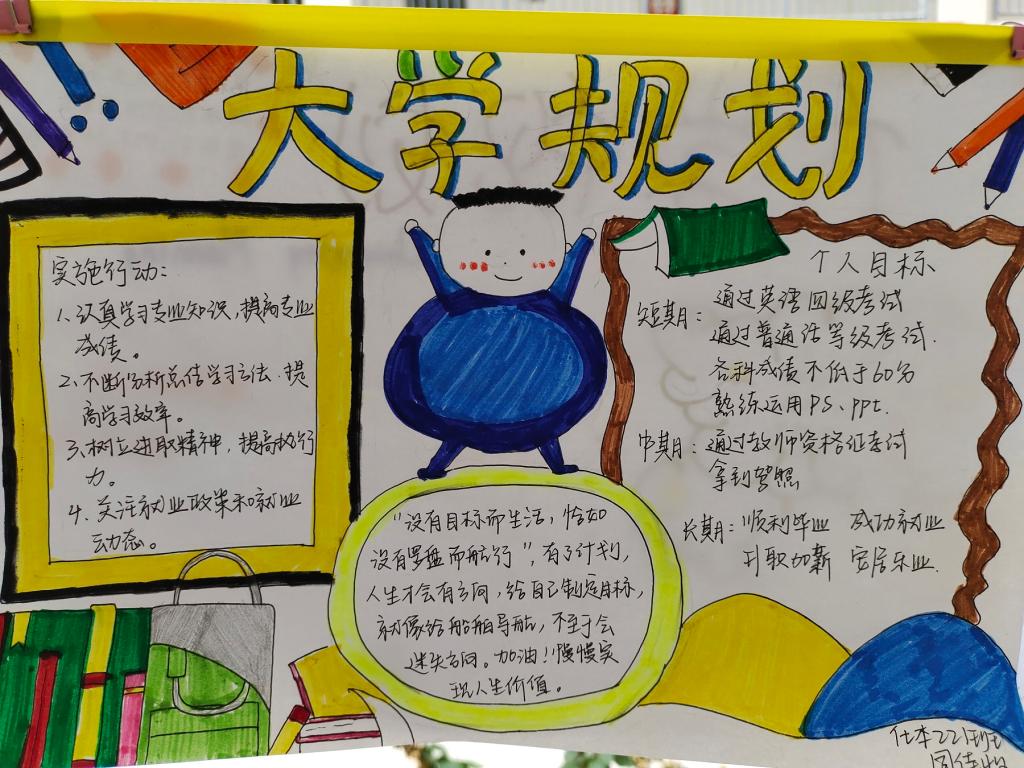 大学规划
实施行动：
1、认真学习专业知识，提高专业
成绩。
2、不断分析总结学习方法.提
高学习效率。
3、树立进取精神，提高执行
力。
4、关注就业政策和就业
动态。
"没有目标而生活，恰如
没有罗盘而航行"，有了计划，
人生才会有方向，给自己制定目标，
就像给船舶导航，不至于会
迷失方向。加油！！慢慢实
现人生价值。
个人目标
短期：通过英语四级考试
通过普通话等级考试.
各科成绩不低于60分
熟练运用PS、ppt.
中期：通过教师资格证考试
拿到驾照
长期：顺利毕业 成功就业
升职加薪 安居乐业.